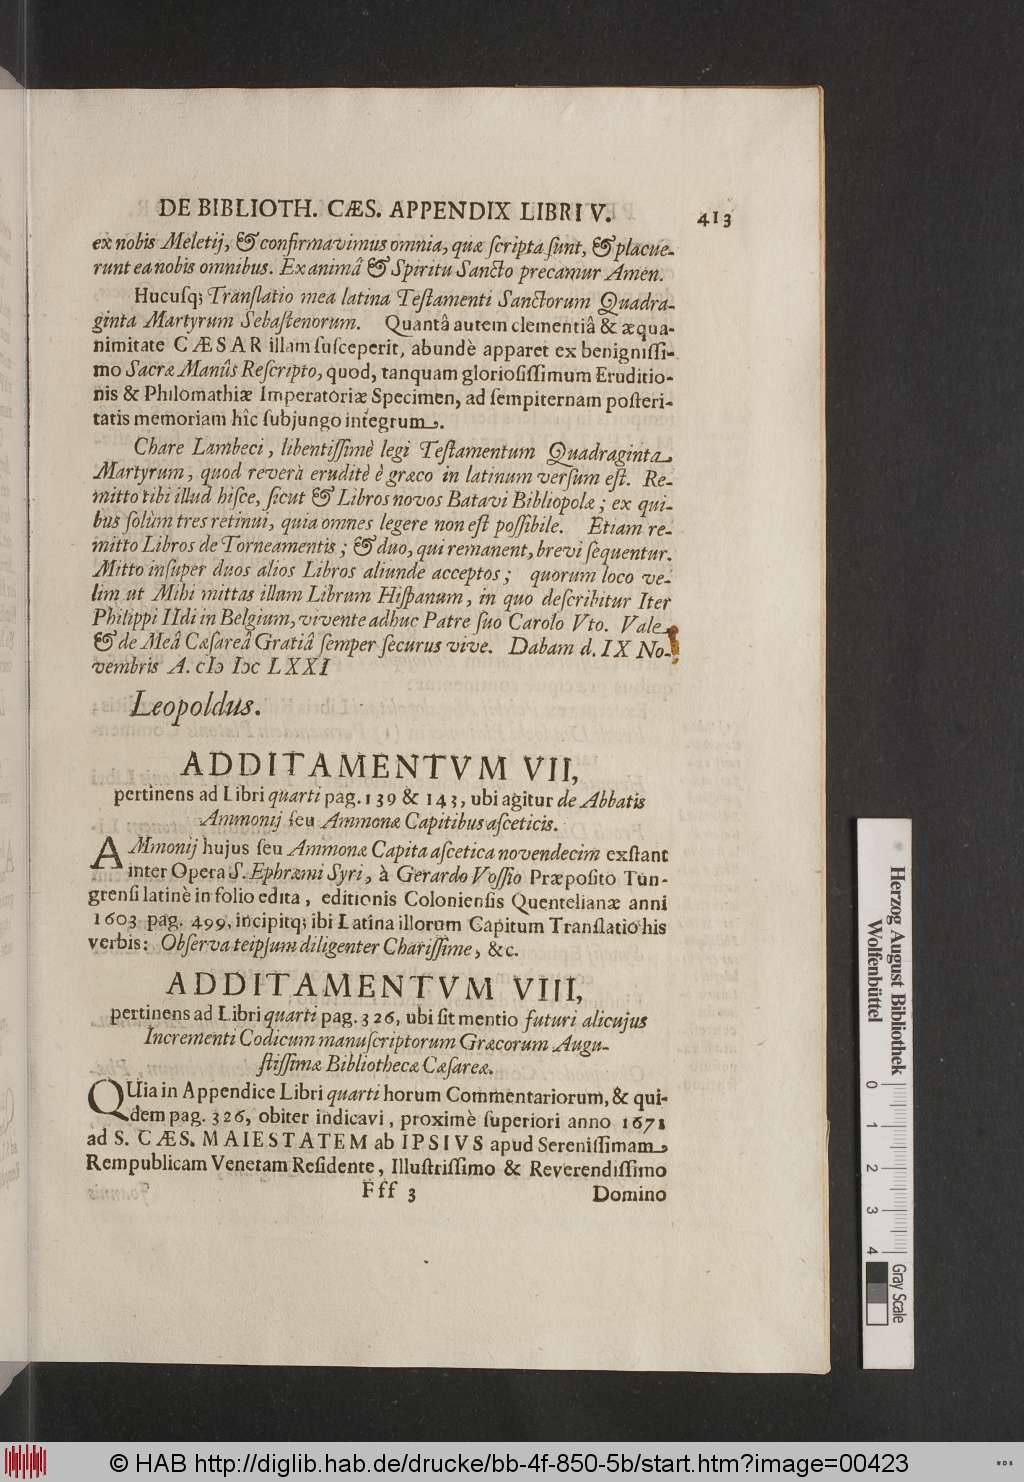 DE BIBLIOTH. CÆS. APPENDIX LIBRI V. 413
ex nobis Meletij, & confirmavimus omnia, quæ ſcripta ſunt, & placue-
runt ea nobis omnibus. Ex animâ & Spiritu Sancto precamur Amen.
Hucuſq; Tranſlatio mea latina Teſtamenti Sanctorum Quadra-
ginta Martyrum Sebaſtenorum. Quantâ autem clementiâ & æqua-
nimitate CÆSAR illam ſuſceperit, abundè apparet ex benigniſſi-
mo Sacræ Manûs Reſcripto, quod, tanquam glorioſiſſimum Eruditio-
nis & Philomathiæ Imperatoriæ Specimen, ad ſempiternam poſteri-
tatis memoriam hîc ſubjungo integrum.
Chare Lambeci, libentiſſimè legi Teſtamentum Quadraginta
Martyrum, quod reverà eruditè è græco in latinum verſum eſt. Re-
mitto tibi illud hiſce, ſicut & Libros novos Batavi Bibliopolæ; ex qui-
bus ſolùm tres retinui, quia omnes legere non eſt poſſibile. Etiam re-
mitto Libros de Torneamentis; & duo, qui remanent, brevi ſequentur.
Mitto inſuper duos alios Libros aliunde acceptos; quorum loco ve-
lim ut Mihi mittas illum Librum Hiſpanum, in quo deſcribitur Iter
Philippi IIdi in Belgium, vivente adhuc Patre ſuo Carolo Vto. Vale
& de Meâ Cæſareâ Gratiâ ſemper ſecurus vive. Dabam d. IX No-
vembris A. cIↄ Iↄc LXXI
Leopoldus.
ADDITAMENTVM VII,
pertinens ad Libri quarti pag. 139 & 143, ubi agitur de Abbatis
Ammonij ſeu Ammonæ Capitibus aſceticis.
AMmonij hujus ſeu Ammonæ Capita aſcetica novendecim exſtant
inter Opera S. Ephræmi Syri, à Gerardo Voſſio Præpoſito Tun-
grenſi latinè in folio edita, editionis Colonienſis Quentelianæ anni
1603 pag. 499, incipitq; ibi Latina illorum Capitum Tranſlatio his
verbis: Obſerva teipſum diligenter Chariſſime, &c.
ADDITAMENTVM VIII,
pertinens ad Libri quarti pag. 326, ubi fit mentio futuri alicujus
Incrementi Codicum manuſcriptorum Græcorum Augu-
ſtiſſimæ Bibliothecæ Cæſareæ.
QUia in Appendice Libri quarti horum Commentariorum, & qui-
dem pag. 326, obiter indicavi, proximè ſuperiori anno 1671
ad S. CÆS. MAIESTATEM ab IPSIVS apud Sereniſſimam
Rempublicam Venetam Reſidente, Illuſtriſſimo & Reverendiſſimo
Fff 3 Domino
Herzog August Bibliothek
Wolfenbüttel
0 1 2 3 4
Gray Scale
© HAB http://diglib.hab.de/drucke/bb-4f-850-5b/start.htm?image=00423